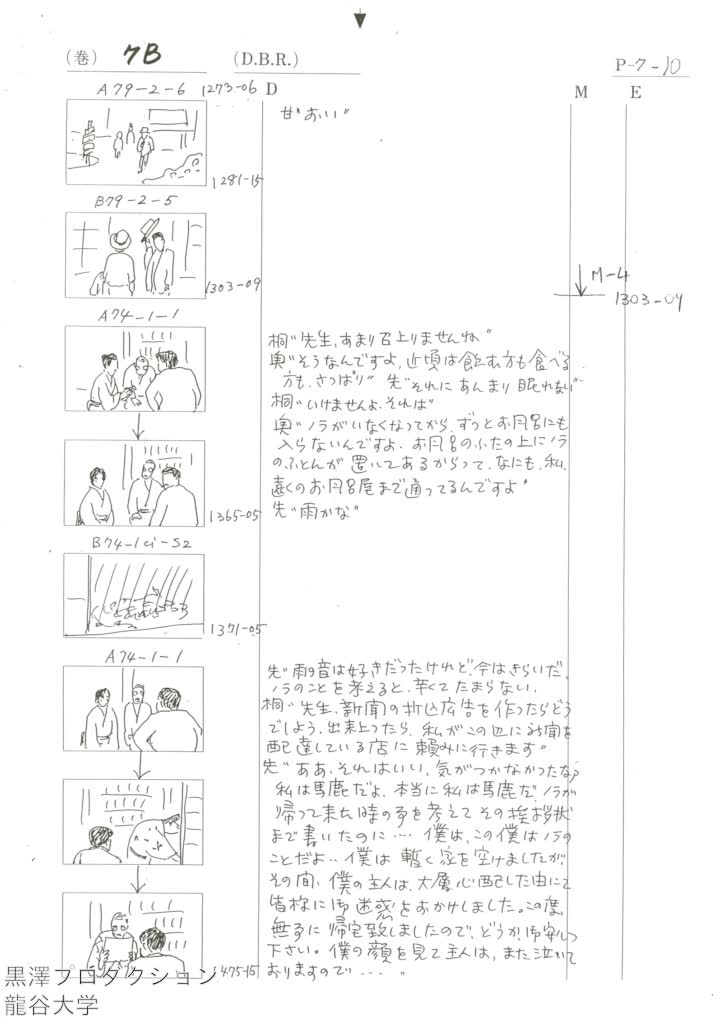 (巻) 7B (D.B.R.) P-7-10
A79-2-6 1273-06 D M E
甘〝おい〟
1281-15
B79-2-5
1303-09
M-4
1303-09
A74-1-1
桐〝先生、あまり召上りませんね〟
奥〝そうなんですよ、近頃は飲む方も食べる
方も、さっぱり〟 先〝それに あんまり 眠れない〟
桐〝いけませんよ、それは〟
奥〝ノラがいなくなってから、ずっとお風呂にも
入らないんですよ、お風呂のふたの上にノラ
のふとんが 置いてあるからって、なにも、私、
遠くのお風呂屋まで通ってるんですよ〟
先〝雨かな〟
1365-05
B74-1ci-S2
1371-05
A74-1-1
先〝雨の音は好きだったけれど、今はきらいだ、
ノラのことを考えると、辛くてたまらない、
桐〝先生、新聞の折込広告を作ったらどう
でしょう、出来上ったら、私がこの辺に新聞を
配達している店に 頼みに行きます〟
先〝ああ、それはいい、気がつかなかったなァ
私は馬鹿だよ、本当に私は馬鹿だ、ノラが
帰って来た時の事を考えて その挨拶状
まで書いたのに…… 僕は、この僕はノラの
ことだよ‥僕は 暫く家を空けましたが、
その間、僕の主人は、大層心配した由にて
皆様に御迷惑をおかけしました。この度、
無事に帰宅致しましたので、どうか、御安心
下さい。僕の顔を見て主人は、また泣いて
475-15 おりますので……〟
黒澤プロダクション
龍谷大学